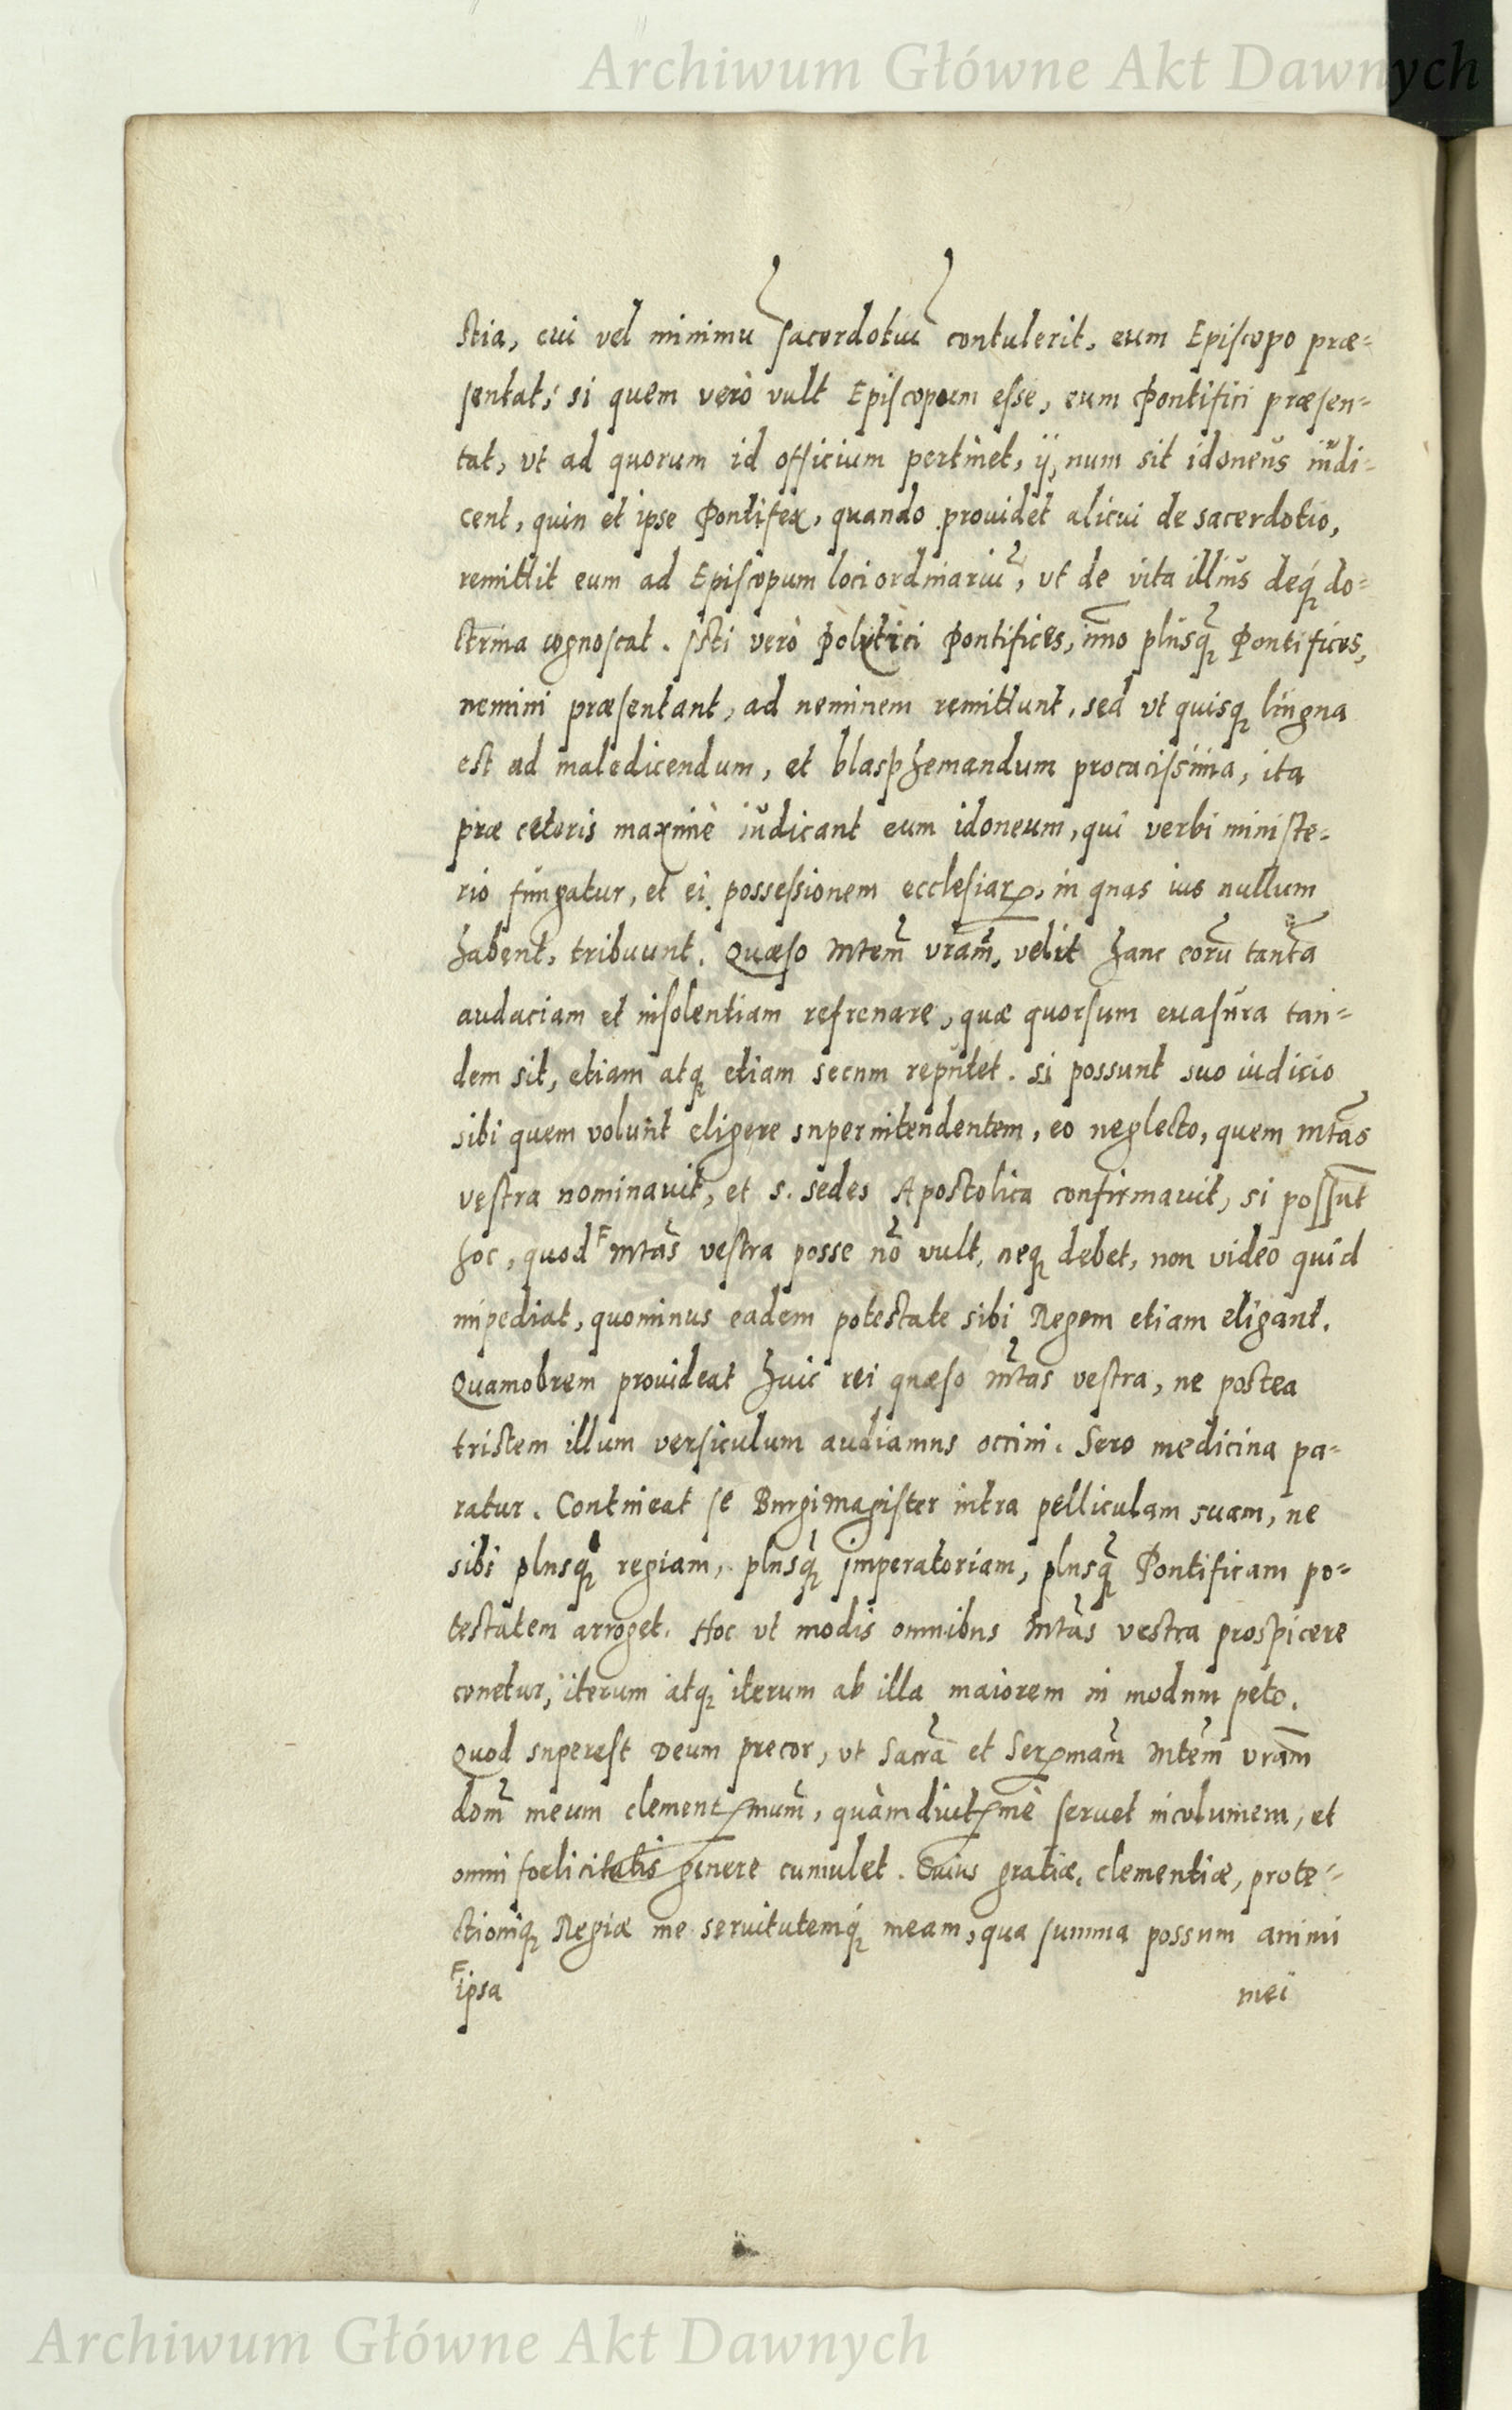 Archiwum Główne Akt Dawnych
stia, cui vel minimũ sacerdotiũ contulerit, eum Episcopo præ-
sentat; si quem verò vult Episcopum esse, eum Pontifici præsen-
tat, vt ad quorum id officium pertinet, ij, num sit idoneus iudi-
cent, quin et ipse Pontifex, quando prouidet alicui de sacerdotio,
remittit eum ad Episcopum loci ordinariũ, vt de vita illius deq́ do-
ctrina cognoscat. Isti verò Politici Pontifices, imo plusq̃ Pontifices,
nemini præsentant, ad neminem remittunt, sed vt quisq lingua
est ad maledicendum, et blasphemandum procacissima, ita
præ ceteris maximè iudicant eum idoneum, qui verbi ministe-
rio fungatur, et ei possessionem ecclesiarꝝ, in quas ius nullum
habent, tribuunt. Quæso Mtem̃ vram̃, velit hanc eorũ tantã
audaciam et insolentiam refrenare, quæ quorsum euasura tan-
dem sit, etiam atq etiam secum reputet. Si possunt suo iudicio
sibi quem volunt eligere superintendentem, eo neglecto, quem Mtãs
vestra nominauit, et S. Sedes Apostolica confirmauit, si possũt
hoc, quod ꟻ Mtãs vestra posse nõ vult, neq debet, non video quid
impediat, quominus eadem potestate sibi Regem etiam eligant.
Quamobrem prouideat huic rei quæso Mtãs vestra, ne postea
tristem illum versiculum audiamus occini. Sero medicina pa-
ratur. Contineat se Burgimagister intra pelliculam suam, ne
sibi plusq̃ regiam, plusq̃ imperatoriam, plusq̃ Pontificam po-
testatem arroget. Hoc vt modis omnibus Mtãs vestra prospicere
conetur, iterum atq iterum ab illa maiorem in modum peto.
Quod superest Deum precor, vt Sacrã et Serꝝmam̃ Mtem̃ vram̃
dom̃ meum clementꝝmum̃, quàm diutꝝmè seruet incolumem, et
omni foelicitatis genere cumulet. Cuius gratiæ, clementiæ, prote-
ctioniq Regiæ me seruitutemq́ meam, qua summa possum animi
ꟻ ipsa mei
Archiwum Główne Akt Dawnych